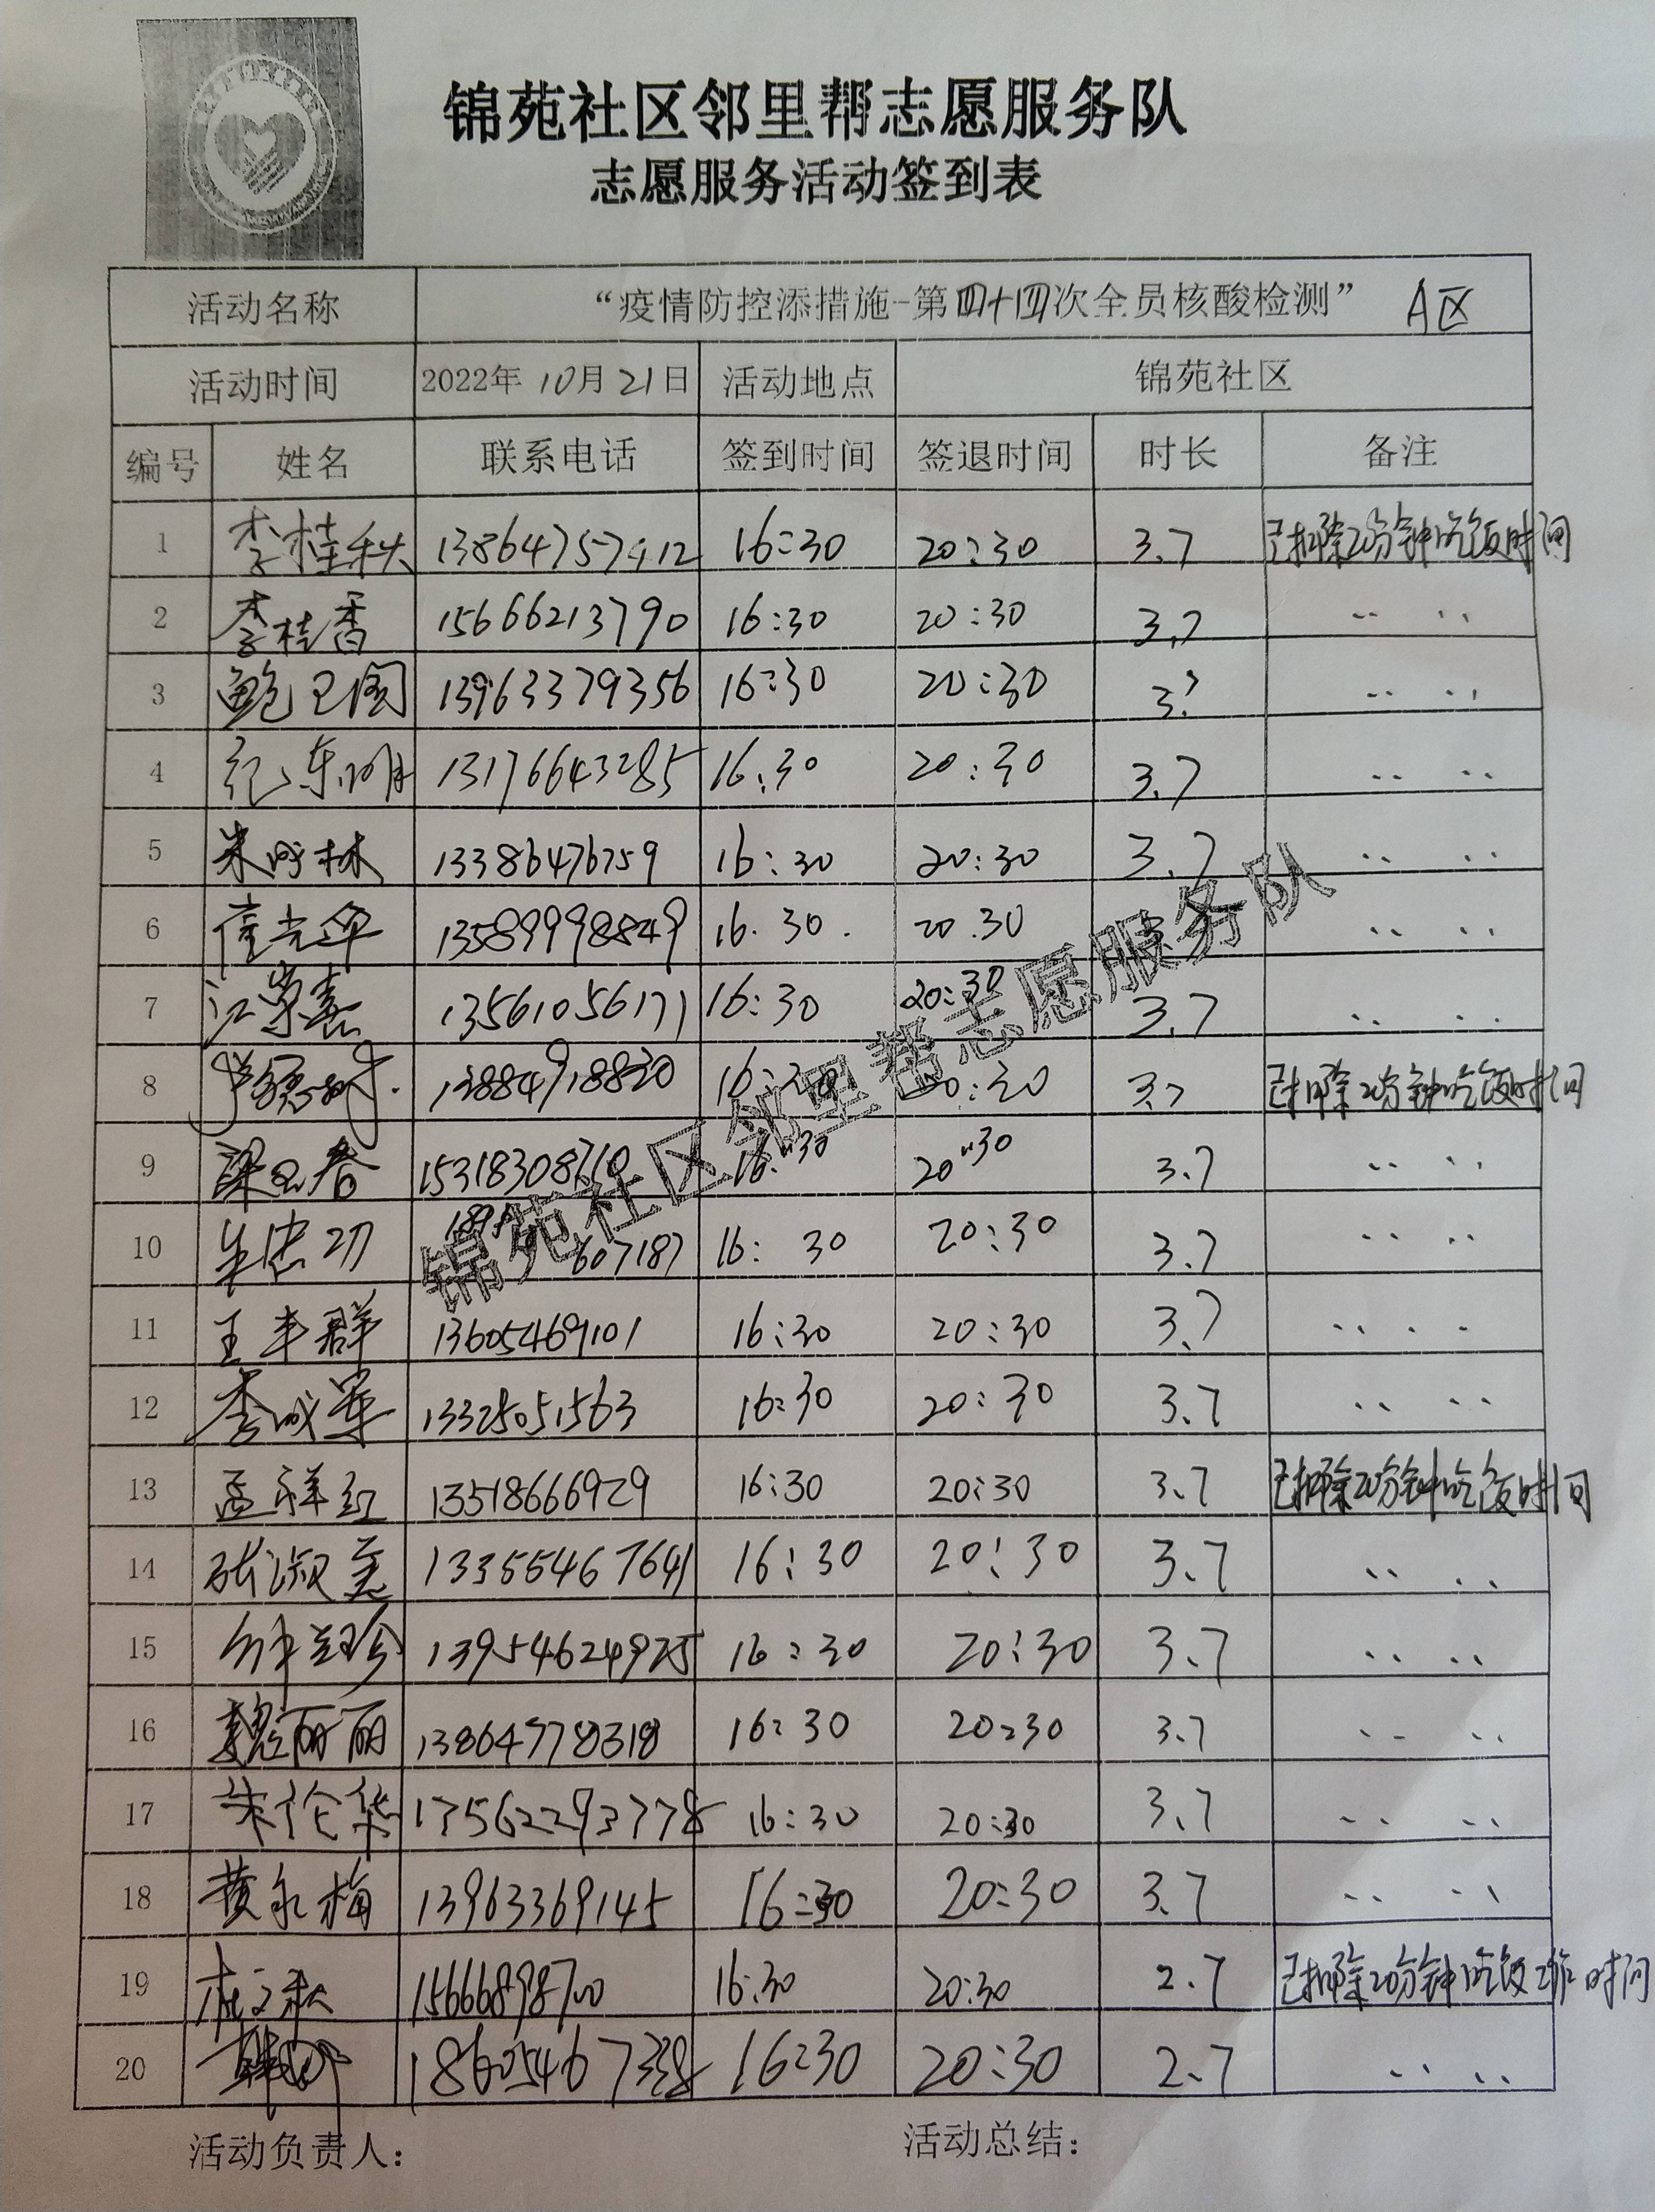 锦苑社区邻里帮志愿服务队
志愿服务活动签到表
活动名称 “疫情防控添措施-第四十四次全员核酸检测” A区
活动时间 2022年10月21日 活动地点 锦苑社区
编号 姓名 联系电话 签到时间 签退时间 时长 备注
1 李桂秋 13864757412 16:30 20:30 3.7 已扣除20分钟吃饭时间
2 李桂香 15666213790 16:30 20:30 3.7 ‥ ‥
3 鲍卫国 13963379356 16:30 20:30 ‥ ‥
4 纪东明 13176643285 16:30 20:30 3.7 ‥ ‥
5 13386476759 16:30 20:30 3.7 ‥ ‥
6 崔光军 13589998849 16.30. 20.30 ‥ ‥
7 江崇嘉 13561056171 16:30 20:30 3.7 ‥ ‥
8 13884918820 20:30 3.7 已扣除20分钟吃饭时间
9 梁玉春 16"30 20"30 3.7 ‥ ‥
10 朱忠功 607187 16:30 20:30 3.7 ‥ ‥
11 王丰群 13605469101 16:30 20:30 3.7 ‥ ‥
12 李成军 13325051563 16:30 20:30 3.7 ‥ ‥
13 孟祥红 13518666929 16:30 20:30 3.7 已扣除20分钟吃饭时间
14 张淑美 13355467641 16:30 20:30 3.7 ‥ ‥
15 钟兰珍 13954624925 16:30 20:30 3.7 ‥ ‥
16 魏丽丽 13864778318 16:30 20:30 3.7 ‥ ‥
17 朱伦华 17562293778 16:30 20:30 3.7 ‥ ‥
18 黄永梅 13963369145 16:30 20:30 3.7 ‥ ‥
19 杜文秋 15666898700 16:30 20:30 2.7 已扣除20分钟吃饭工作时间
20 16:30 20:30 2.7 ‥ ‥
锦苑社区邻里帮志愿服务队
活动负责人： 活动总结：